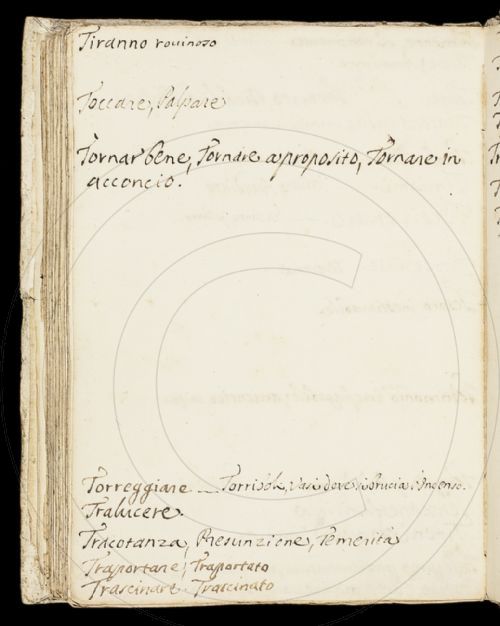 Tiranno rovinoso
Toccare, Palpare
Tornar bene, Tornare a proposito, Tornare in
acconcio.
Torreggiare __ Torribole, vasi dove si brucia, incenso.
Tralucere
Tracotanza, Presunzione, Temerita
Traportare, Traportato
Trascinare Trascinato